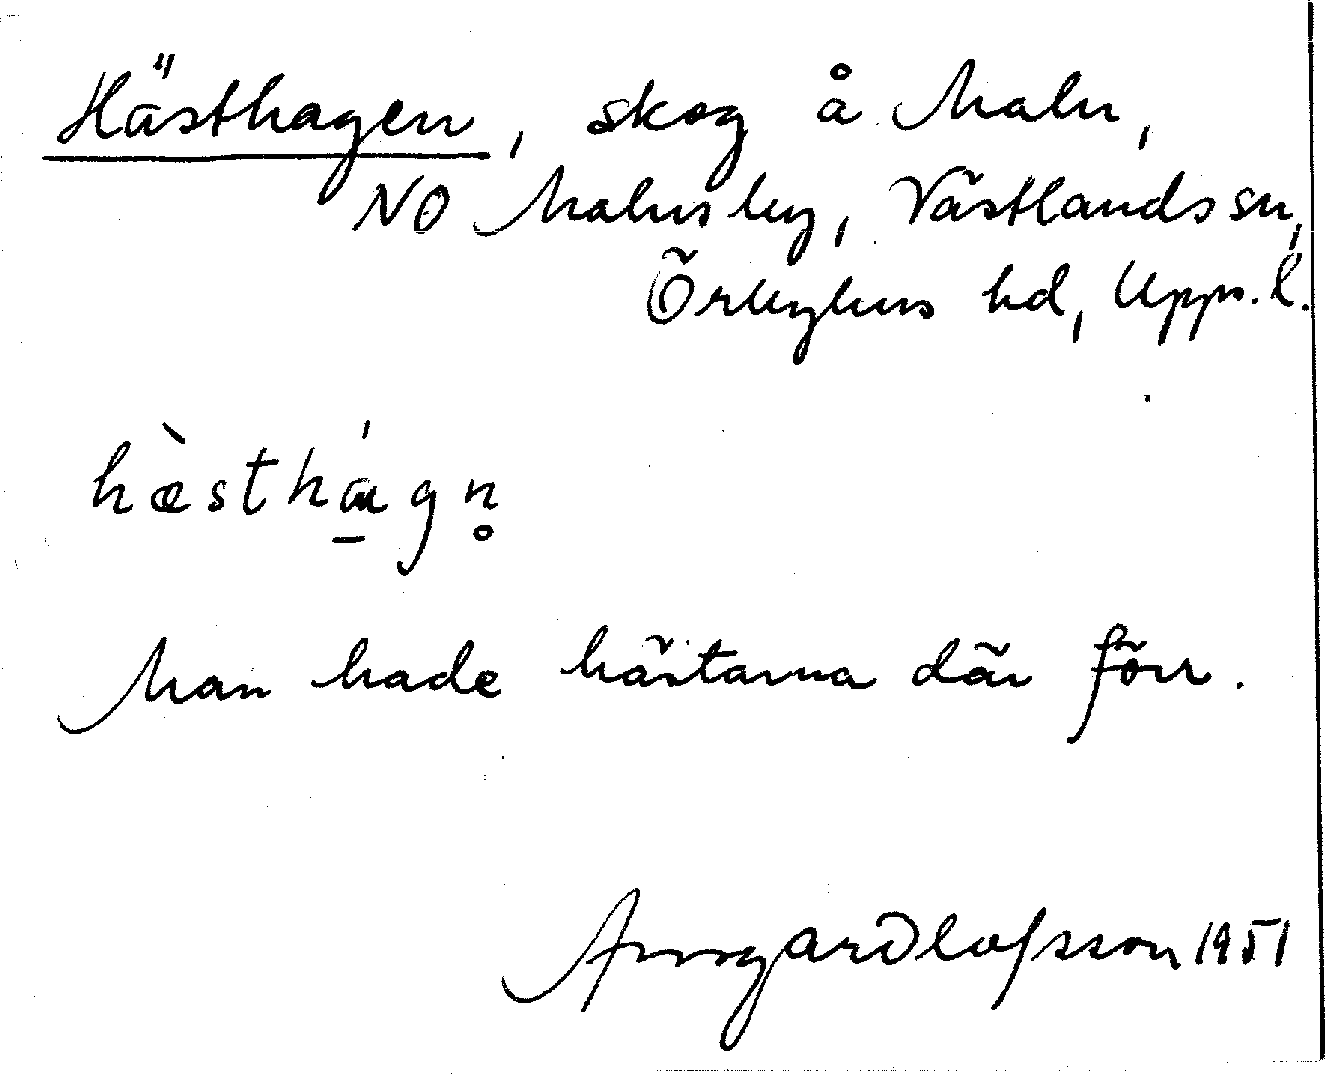 Hästhagen, skog å Maln,
NO Malnsby, Västlands sn,
Örbyhus hd, Upps. l.
hæ̀sthɑ̱́gn̥
Man hade hästarna där förr.
Olofsson 1951